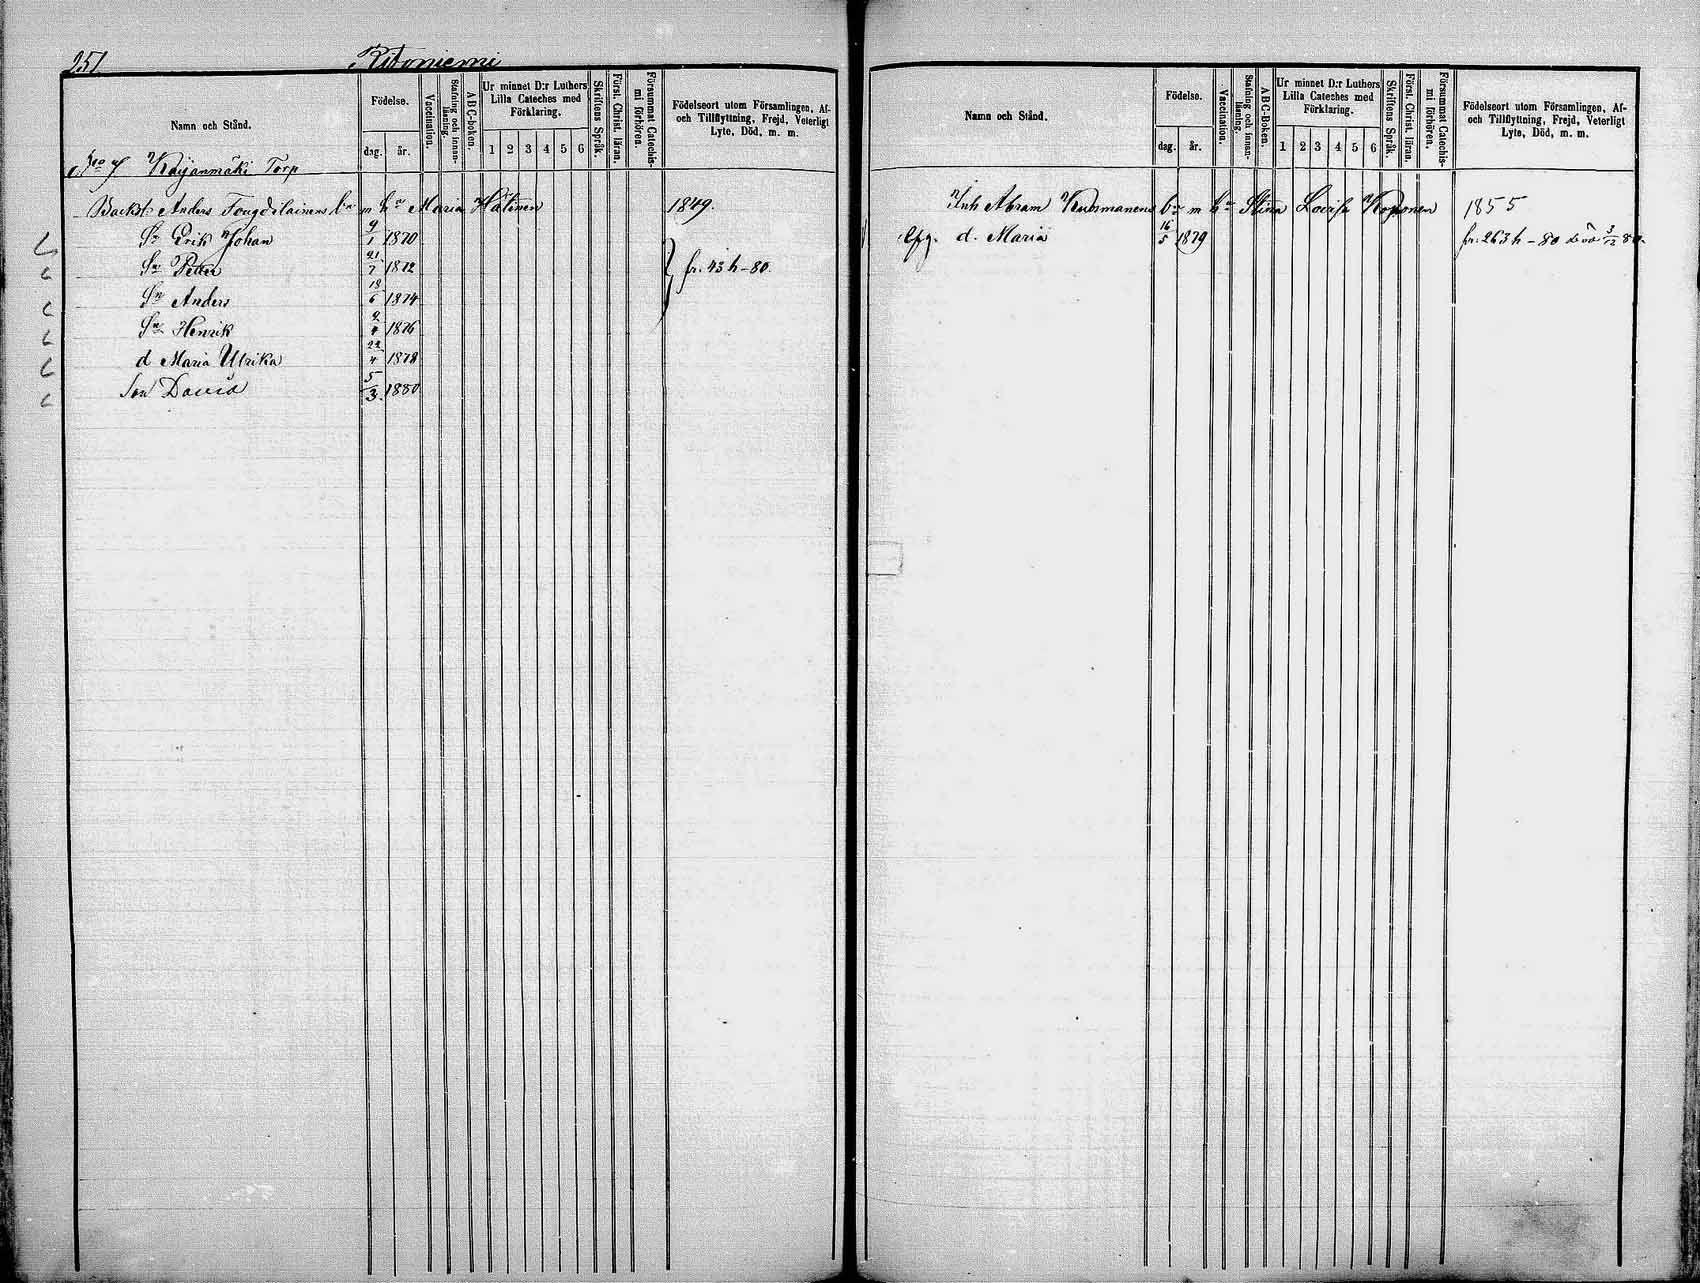 251.
Ritoniemi
Namn och Stånd.
Födelse.
dag. år.
Vaccination.
Stafning och innanläsning.
ABC-boken.
Ur minnet D:r Luthers Lilla Cateches med Förklaring.
1 2 3 4 5 6
Skriftens Språk.
Först. Christ. läran.
Försummat Catechismi förhören.
Födelseort utom Församlingen, Af- och Tillflyttning, Frejd, Veterligt Lyte, Död, m. m.
Torp
Anders m hu Maria Hätinen 1849.
Sn Erik Johan 9/1 1870
Sn Petter 21/7 1872
fr. 43 h - 80.
Sn Anders 18/6 1874
Sn Henrik 1876
d Maria Ulrika 22/4 1878
Son David 5/3 1880
Namn och Stånd.
Födelse.
dag. år.
Vaccination.
Stafning och innanläsning.
ABC-Boken.
Ur minnet D:r Luthers Lilla Cateches med Förklaring.
1 2 3 4 5 6
Skriftens Språk.
Först. Christ. läran.
Försummat Catechismi förhören.
Födelseort utom Församlingen, Af- och Tillflyttning, Frejd, Veterligt Lyte, Död, m. m.
Inh Abram m h Stina Lovisa Koponen 1855
d. Maria 16/5 1879 fr. 263 h - 80 död 3/12 80.